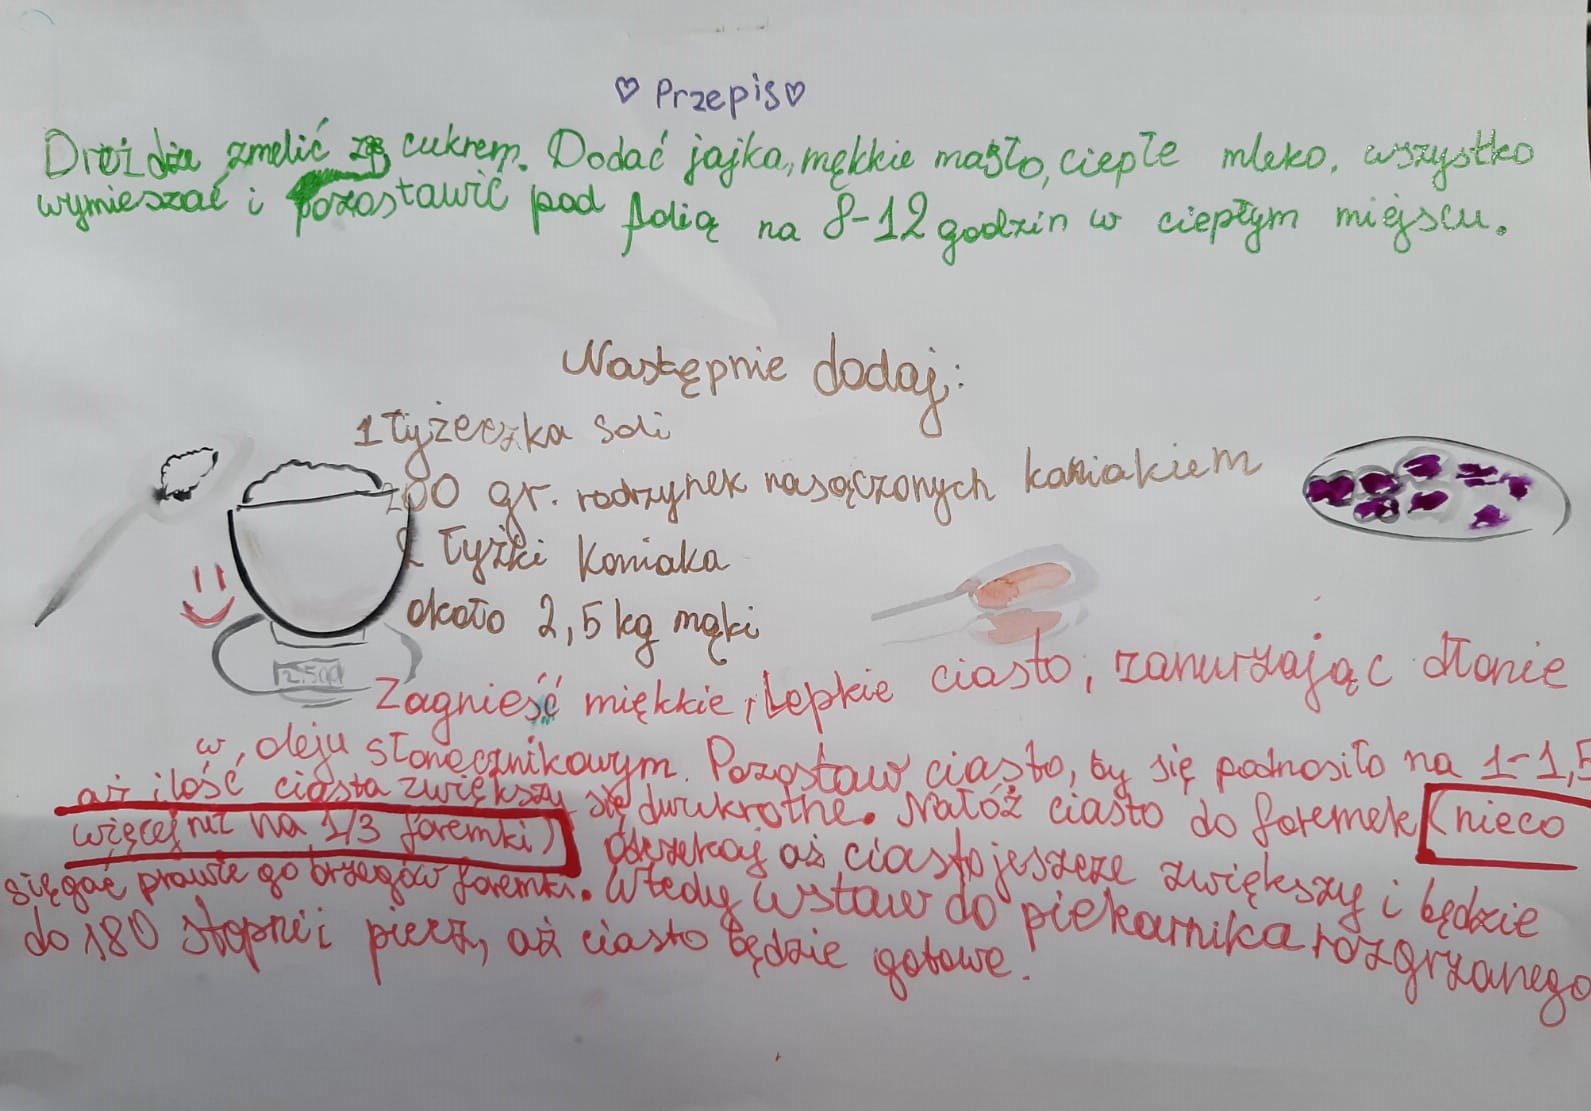 ♡ Przepis ♡
Drożdże zmelić z cukrem. Dodać jajka, mękkie masło, ciepłe mleko, wszystko
wymieszać i pozostawić pod folią na 8-12 godzin w ciepłym miejscu.
Następnie dodaj:
1 łyżeczka soli
200 gr. rodzynek nasączonych koniakiem
2 łyżki koniaka
około 2,5 kg mąki
Zagnieść miękkie, lepkie ciasto, zanurzając dłonie
w oleju słonecznikowym. Pozostaw ciasto, by się podnosiło na 1-1,5
aż ilość ciasta zwiększy się dwukrotne. Nałóż ciasto do foremek (nieco
więcej niż na 1/3 foremki) Odczekaj aż ciasto jeszcze zwiększy i będzie
sięgać prawie go brzegów foremki. Wtedy wstaw do piekarnika rozgrzanego
do 180 stopni i piecz, aż ciasto będzie gotowe.